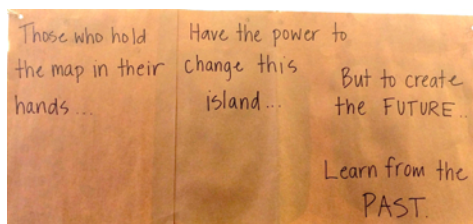 Those who hold
the map in their
hands...
Have the power to
change this
island...
But to create
the FUTURE..
Learn from the
PAST.